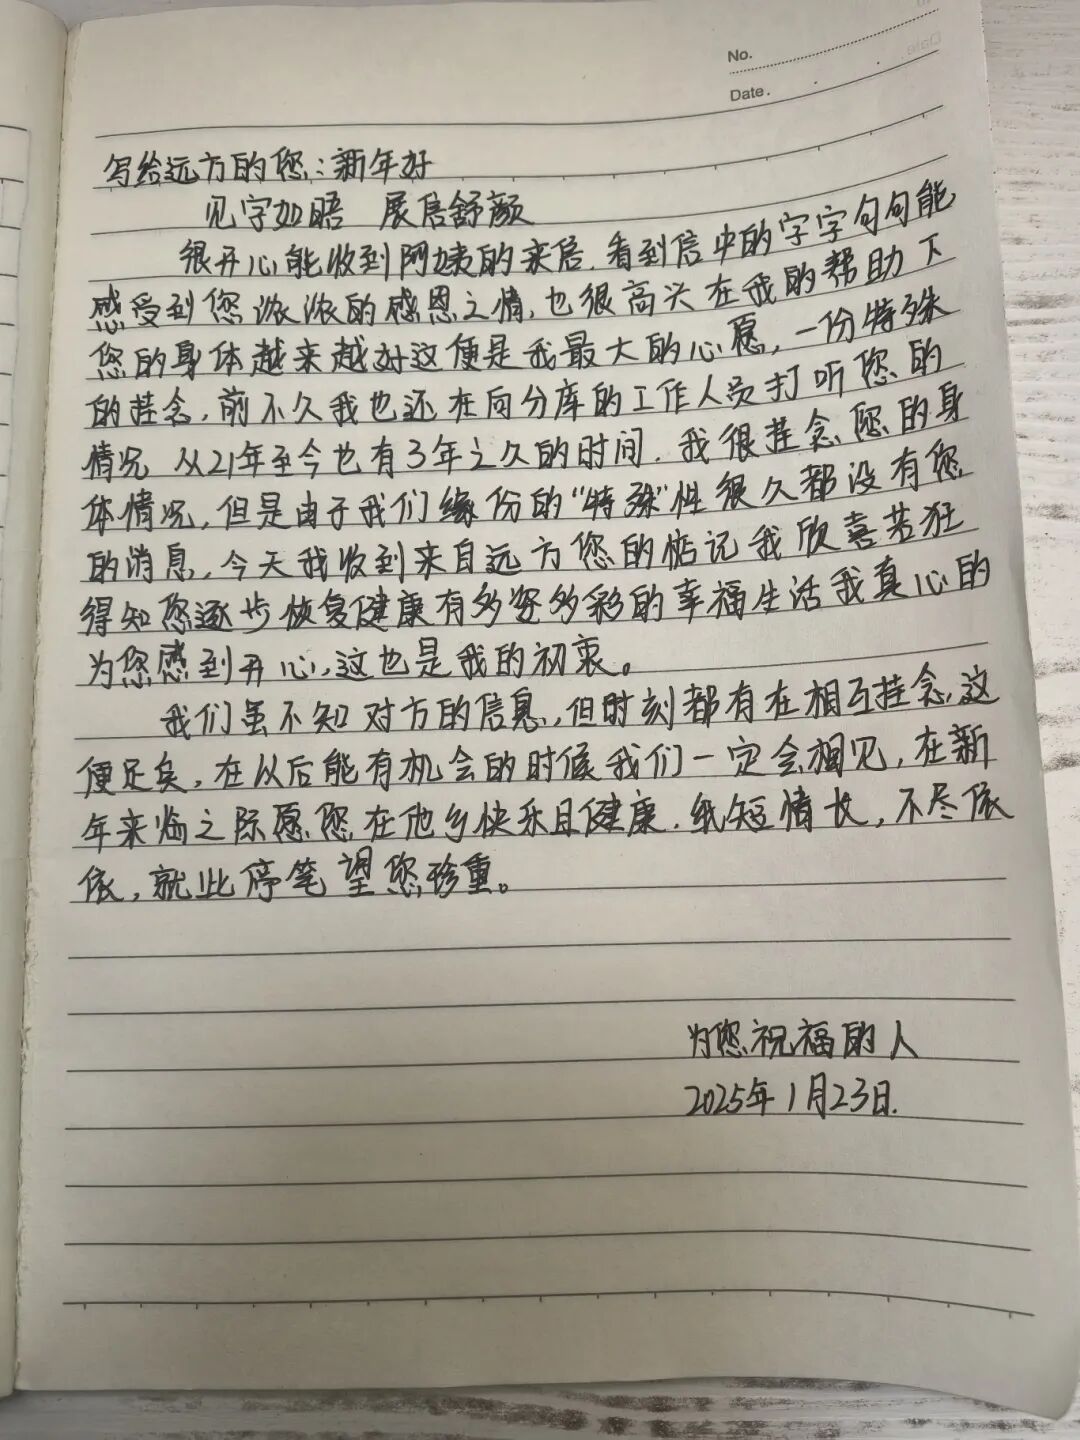 No.
Date.
写给远方的您:新年好
见字如晤 展信舒颜
很开心能收到阿姨的来信.看到信中的字字句句能
感受到您浓浓的感恩之情,也很高兴在我的帮助下
您的身体越来越好这便是我最大的心愿,一份特殊
的挂念,前不久我也还在向分库的工作人员打听您的
情况 从21年至今也有3年之久的时间.我很挂念您的身
体情况,但是由于我们缘份的"特殊"性很久都没有您
的消息,今天我收到来自远方您的惦记我欣喜若狂
得知您逐步恢复健康有多姿多彩的幸福生活我真心的
为您感到开心,这也是我的初衷。
我们虽不知对方的信息,但时刻都有在相互挂念,这
便足矣,在以后能有机会的时候我们一定会相见,在新
年来临之际愿您在他乡快乐且健康.纸短情长,不尽依
依,就此停笔望您珍重。
为您祝福的人
2025年1月23日.